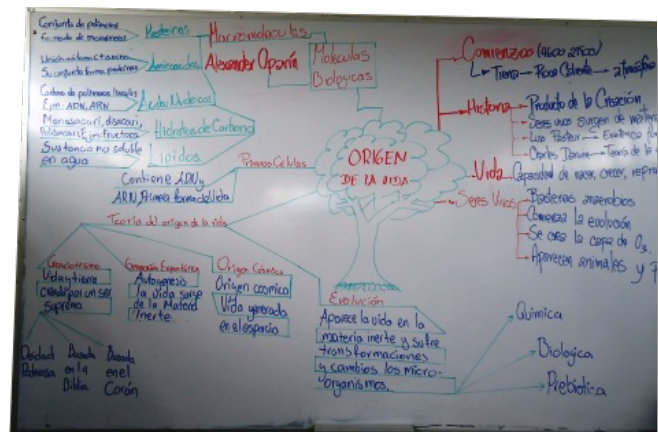 Conjunto de polimeros
formado de monomeros
Proteinas
Macromoleculas
Alexander Oparin
Moleculas
Biologicas
Aminoacidos
Su conjunto forma proteinas
Cadena de polimeros lineales
Ejm: ADN, ARN
Monosacari, disacari,
Hidratos de Carbono
Sustancia no soluble
en agua
Lipidos
Primeras Células
Contiene ADN y
ARN, Primera forma de Vida
ORIGEN
DE LA VIDA
Comienzo (4600 años)
Tierra Roca Caliente atmósfera
Historia
Producto de la Creación
Seres vivos surgen de materia
Luis Pasteur
Charles Darwin Teoría de la
Vida
Capacidad de nacer, crecer,
Seres Vivos
Bacterias anaerobias
Comienza la evolución
Se crea la capa de O3.
Aparecen animales y
Teoría del origen de la vida
Creacionismo
Vida y tierra
creado por un ser
supremo
Deidad
Poderosa
Basada
en la
Biblia
Basada
en el
Corán
Generación Espontánea
la vida surge
de la Materia
Inerte
Origen Cósmico
Origen cosmico
Vida generada
en el espacio
Evolución
Aparece la vida en la
materia inerte y sufre
transformaciones
y cambios los micro-
organismos.
Quimica
Biologica
Prebiotica